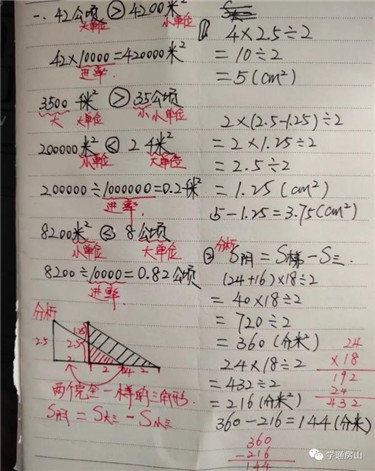 一.42公顷 > 4200米²
大单位 小单位
42×10000=420000米²
进率
3500千米² > 35公顷
大 大单位 小 小单位
200000米² < 2千米²
小单位 大单位
200000÷1000000=0.2千米²
进率
8200米² < 8公顷
小单位 大单位
8200÷10000=0.82公顷
进率
分析
2.5
2
2
两个完全一样的三角形.
S阴=S大三-S小三
①
4×2.5÷2
=10÷2
=5(cm²)
2×(2.5-1.25)÷2
=2×1.25÷2
=2.5÷2
=1.25(cm²)
5-1.25=3.75(cm²)
② 分析
S阴=S梯-S三.
(24+16)×18÷2
=40×18÷2
=720÷2
=360(分米²)
24×18÷2
=432÷2
=216(分米²)
360-216=144(分米²)
24
×18
192
24
432
360
-216
144
学通房山